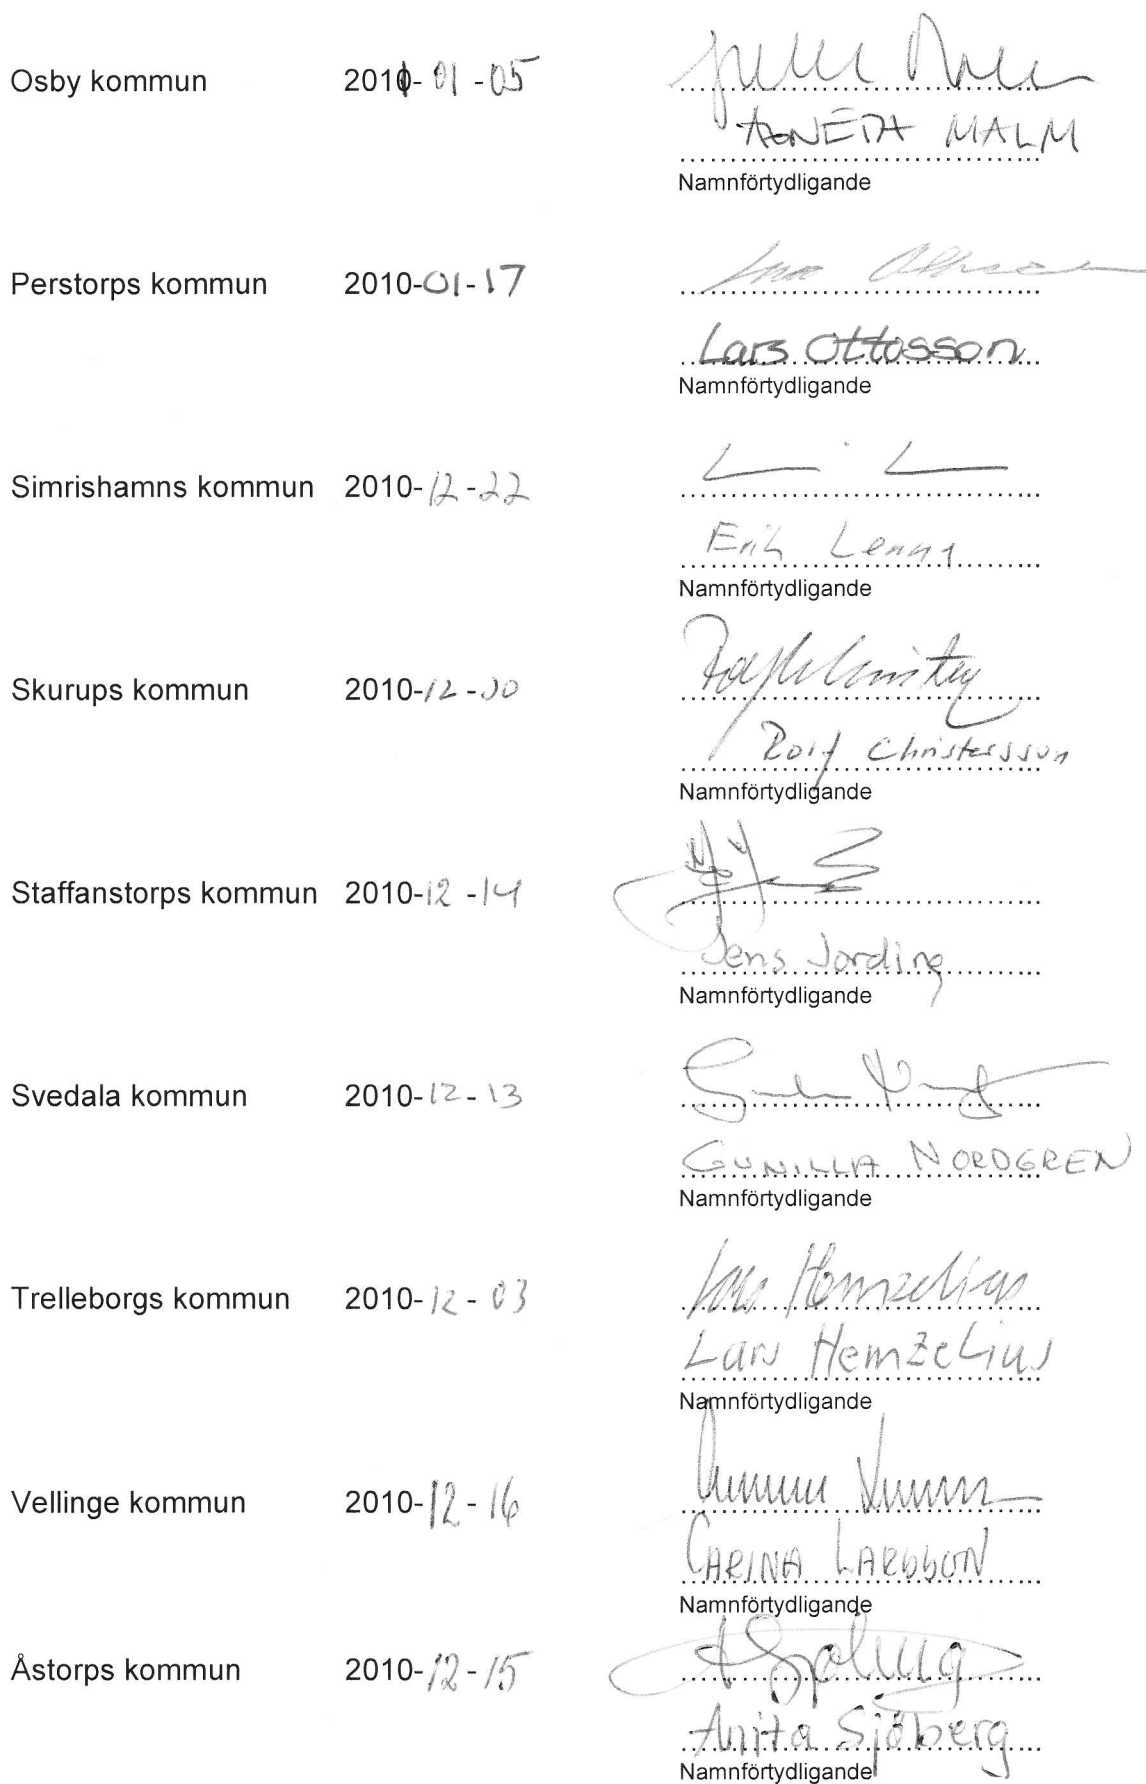 Osby kommun 2011-01-05
AGNETA MALM
Namnförtydligande
Perstorps kommun 2010-01-17
Lars Ottosson
Namnförtydligande
Simrishamns kommun 2010-12-22
Erik Lenna
Namnförtydligande
Skurups kommun 2010-12-
Rolf Christersson
Namnförtydligande
Staffanstorps kommun 2010-12-14
Jens Jording
Namnförtydligande
Svedala kommun 2010-12-13
GUNILLA NORDGREN
Namnförtydligande
Trelleborgs kommun 2010-12-03
Lars Hemzelius
Lars Hemzelius
Namnförtydligande
Vellinge kommun 2010-12-16
CARINA LARSSON
Namnförtydligande
Åstorps kommun 2010-12-15
Anita Sjöberg
Namnförtydligande